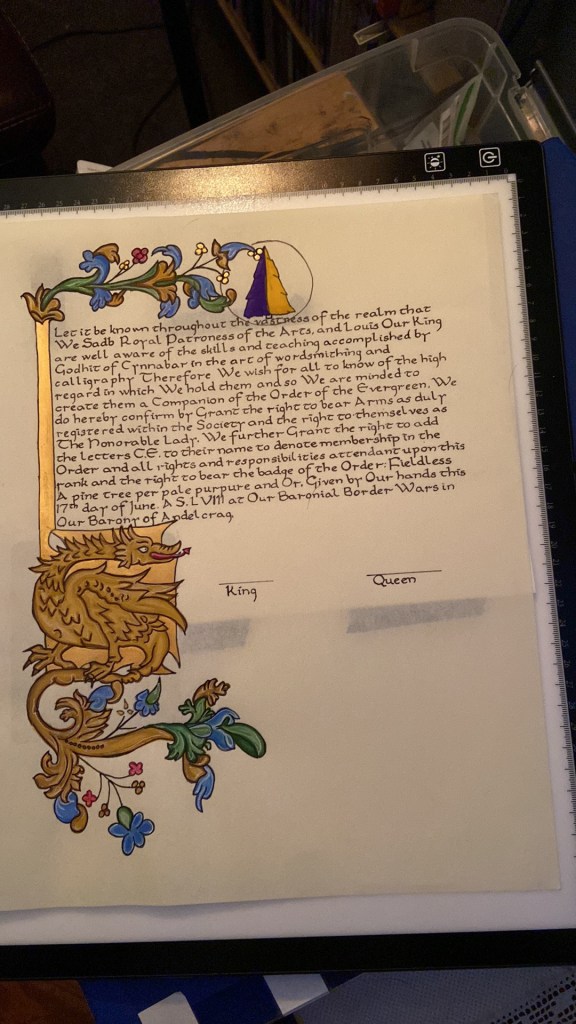 Let it be known throughout the vastness of the realm that
We Sadb Royal Patroness of the Arts, and Louis Our King
are well aware of the skills and teaching accomplished by
Godhit of Cynnabar in the art of wordsmithing and
calligraphy Therefore We wish for all to know of the high
regard in which We hold them and so We are minded to
create them a Companion of the Order of the Evergreen. We
do hereby confirm by Grant the right to bear Arms as duly
registered within the Society and the right to themselves as
The Honorable Lady. We further Grant the right to add
the letters C.E. to their name to denote membership in the
Order and all rights and responsibilities attendant upon this
rank and the right to bear the badge of the Order: Fieldless
A pine tree per pale purpure and Or. Given by Our hands this
17th day of June. A S. LVIII at Our Baronial Border Wars in
Our Barony of Andelcrag.
King
Queen